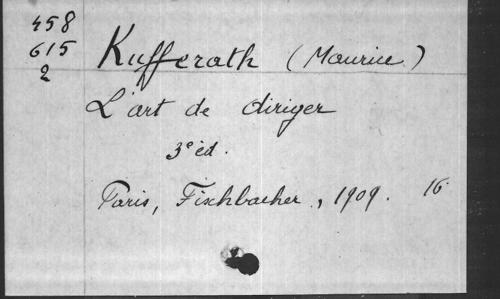 458
615
2
Kufferath (Maurice)
L'art de diriger
3e éd.
Paris, Fischbacher, 1909. 16